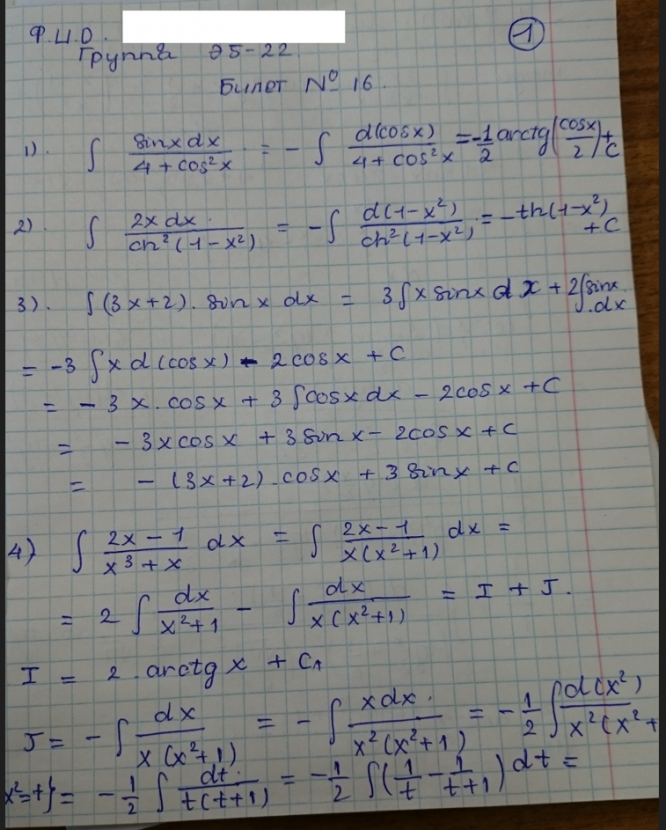 Ф.И.О.
①
Группа Э5-22
Билет № 16.
1). ∫ sinx dx / (4 + cos²x) = - ∫ d(cosx) / (4 + cos²x) = -1/2 arctg(cosx/2) + C
2). ∫ 2x dx / ch²(1-x²) = -∫ d(1-x²) / ch²(1-x²) = -th(1-x²) + C
3). ∫(3x+2). sinx dx = 3∫x sinx dx + 2∫sinx.dx
= -3 ∫x d(cosx) - 2cosx + C
= - 3x.cosx + 3∫cosx dx - 2cosx + C
= - 3xcosx + 3sinx - 2cosx + C
= - (3x+2).cosx + 3sinx + C
4) ∫ (2x-1)/(x³+x) dx = ∫ (2x-1)/(x(x²+1)) dx =
= 2∫ dx/(x²+1) - ∫ dx/(x(x²+1)) = I + J.
I = 2.arctgx + C₁
J = -∫ dx/(x(x²+1)) = -∫ xdx/(x²(x²+1)) = -1/2 ∫ d(x²)/(x²(x²+
x²=t} = -1/2 ∫ dt/(t(t+1)) = -1/2 ∫(1/t - 1/(t+1)) dt =